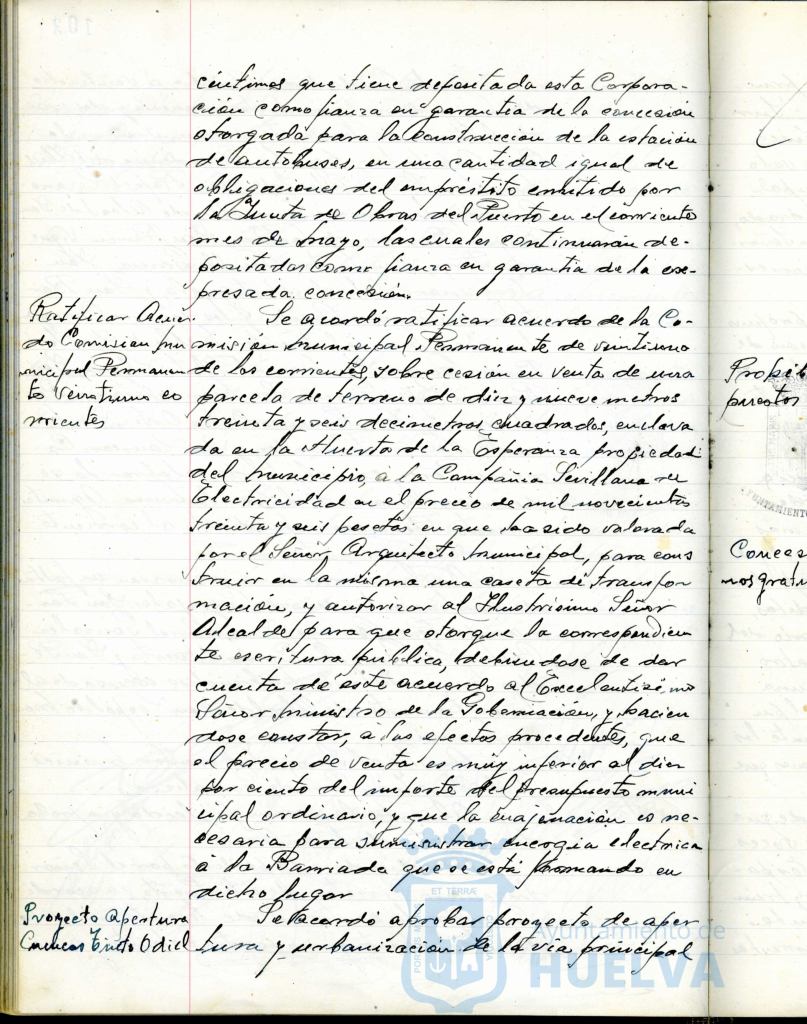 céntimos que tiene depositada esta Corpora-
ción como fianza en garantia de la concesión
otorgada para la construcción de la estación
de autobuses, en una cantidad igual de
obligaciones del empréstito emitido por
la Junta de Obras del Puerto en el corriente
mes de Mayo, las cuales continuarán de-
positadas como fianza en garantia de la ex-
presada concesión.
Ratificar Acuer-
do Comision Mu
nicipal Permanen
te veintiuno co
rrientes
Se acordó ratificar acuerdo de la Co-
misión Municipal Permanente de veintiuno
de los corrientes, sobre cesión en venta de una
parcela de terreno de diez y nueve metros
treinta y seis decimetros cuadrados, enclava
da en la Huerta de la Esperanza propiedad
del Municipio, a la Compañia Sevillana de
Electricidad en el precio de mil novecientas
treinta y seis pesetas en que ha sido valorada
por el Señor Arquitecto Municipal, para cons
truir en la misma una caseta de transfor
mación, y autorizar al Ilustrisimo Señor
Alcalde para que otorgue la correspondien
te escritura pública, debiendose de dar
cuenta de este acuerdo al Excelentisimo
Señor Ministro de la Gobernación, y hacien
dose constar, a los efectos procedentes, que
el precio de venta es muy inferior al diez
por ciento del importe del presupuesto muni
cipal ordinario, y que la enajenación es ne-
cesaria para suministrar energia electrica
a la Barriada que se está formando en
dicho lugar
Proyecto Apertura
Cuencas Tinto Odiel
Se acordó aprobar proyecto de aper
tura y urbanización de la via principal
puestos
Conces
nos gratu
ET TERRÆ
Ayuntamiento de
HUELVA